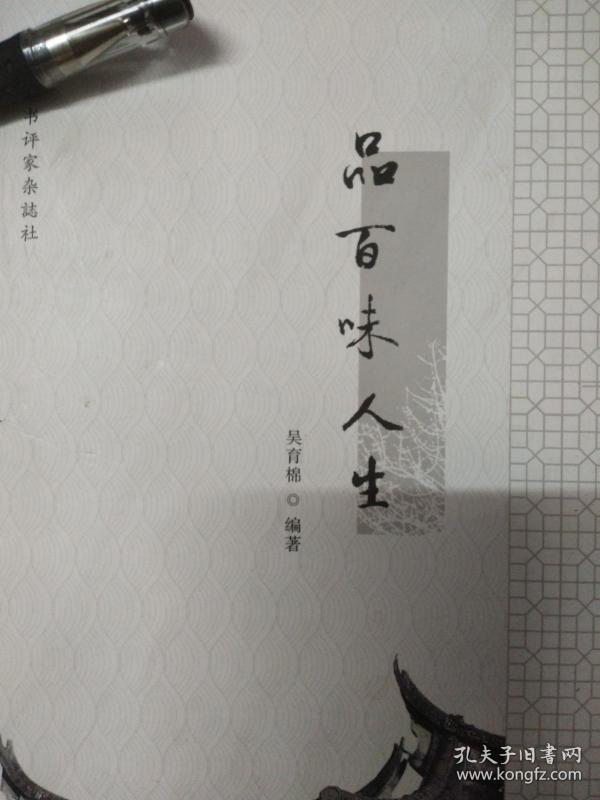 品百味人生
吴育棉◎编著
书评家杂誌社
孔夫子旧書网
www.kongfz.com